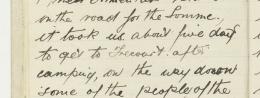 on the road for the Somme.
it took us about five days
to get to Fricourt. after
camping, on the way down
some of the people of the